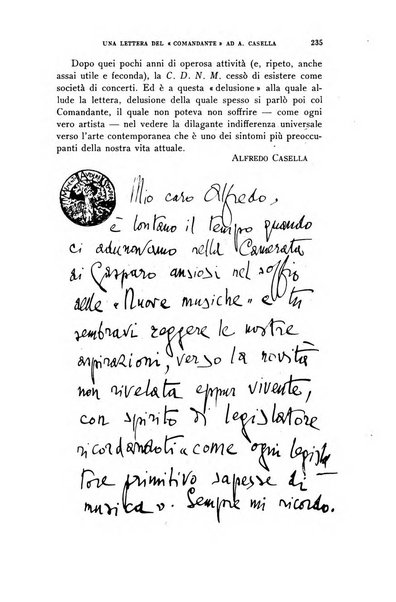 UNA LETTERA DEL « COMANDANTE » AD A. CASELLA 235
Dopo quei pochi anni di operosa attività (e, ripeto, anche
assai utile e feconda), la C. D. N. M. cessò di esistere come
società di concerti. Ed è a questa « delusione » alla quale al-
lude la lettera, delusione della quale spesso si parlò poi col
Comandante, il quale non poteva non soffrire — come ogni
vero artista — nel vedere la dilagante indifferenza universale
verso l'arte contemporanea che è uno dei sintomi più preoccu-
panti della nostra vita attuale.
ALFREDO CASELLA
Mio caro Alfredo,
è lontano il tempo quando
ci adunavamo nella Camerata
di Gasparo ansiosi nel soffio
delle « Nuove musiche » e tu
sembravi reggere le nostre
aspirazioni, verso la novità
non rivelata eppur vivente,
con spirito di legislatore
ricordandoti « come ogni legisla
tore primitivo sapesse di
musica ». Sempre mi ricordo.